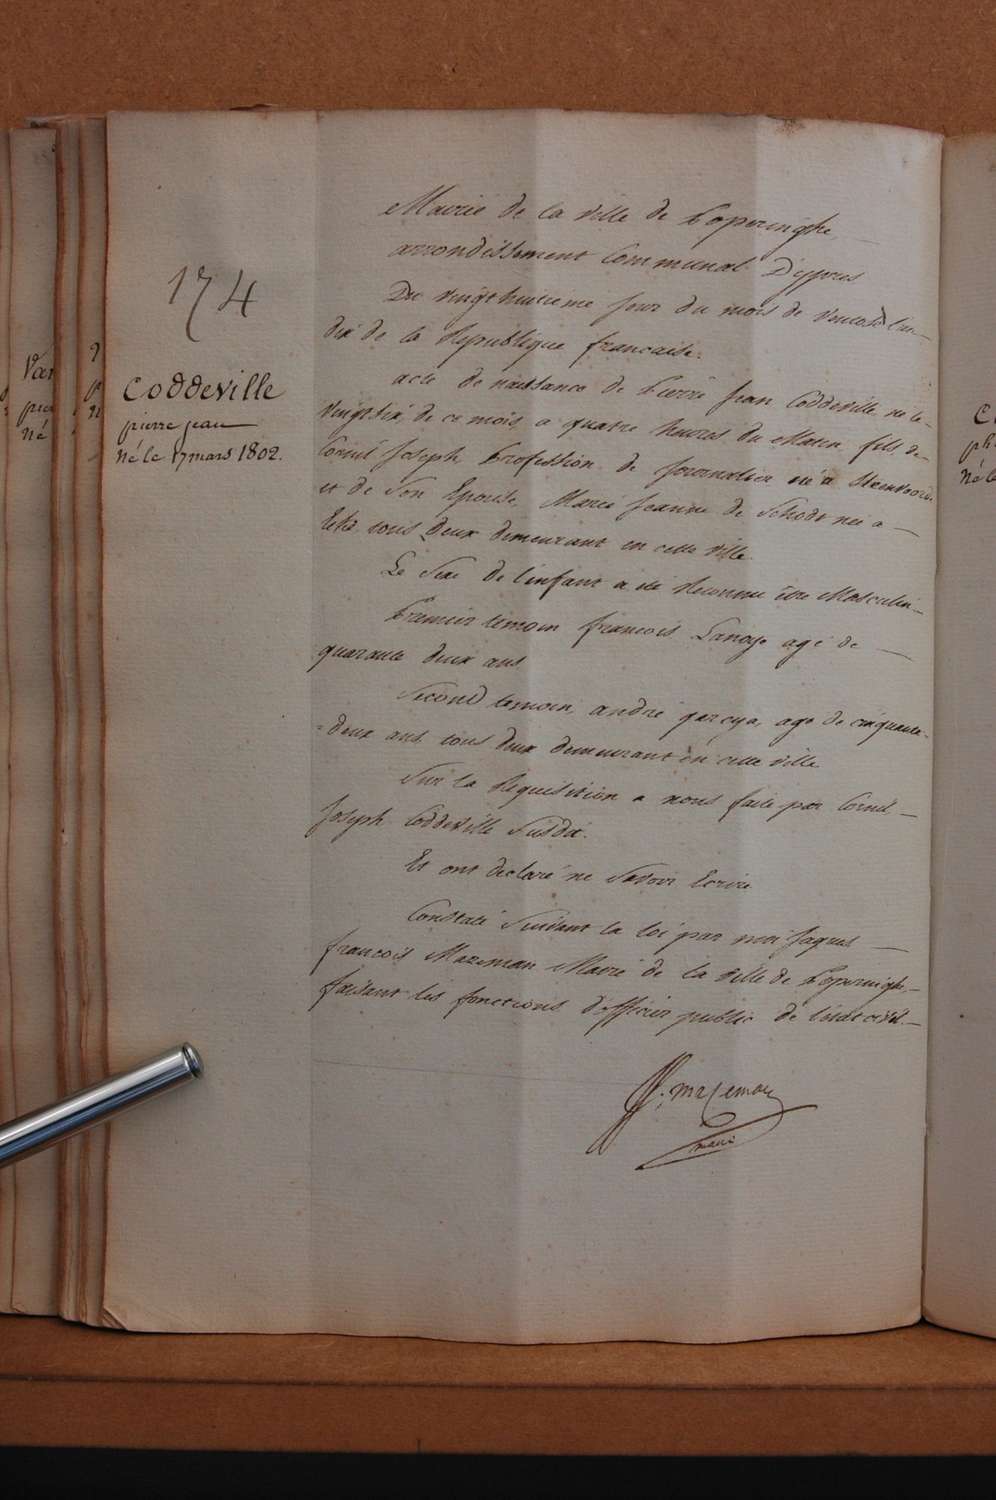 174
Coddeville
pierre jean
Né le 17 mars 1802.
Mairie de la ville de Poperinghe
arrondissement Communal D'ypres
Du vingt huitieme Jour du mois de Ventose l'an
dix de la Republique francaise.
acte de naissance de Pierre Jean Coddeville né le
vingt six de ce mois a quatre heures du Matin fils de
Cornil Joseph Profession de Journalier né a Steenvoorde
et de Son Epouse Marie Jeanne de Schodt née a
tous deux demeurant en cette ville
Le Sexe de l'enfant a été Reconnu être Masculin
Premier temoin francois Lanoye agé de
quarante deux ans
Second temoin andré agé de cinquante
=deux ans tous deux demeurant en cette ville
Sur la Requisition a nous faite par Cornil
Joseph Coddeville Susdit.
Et ont declaré ne Savoir Ecrire
Constaté Suivant la loi par moi Jaques
francois Mazeman Maire de la ville de Poperinghe
faisant les fonctions d'officier public de l'état civil.
mazeman
maire
Van
pier
né
C
ph
Né le